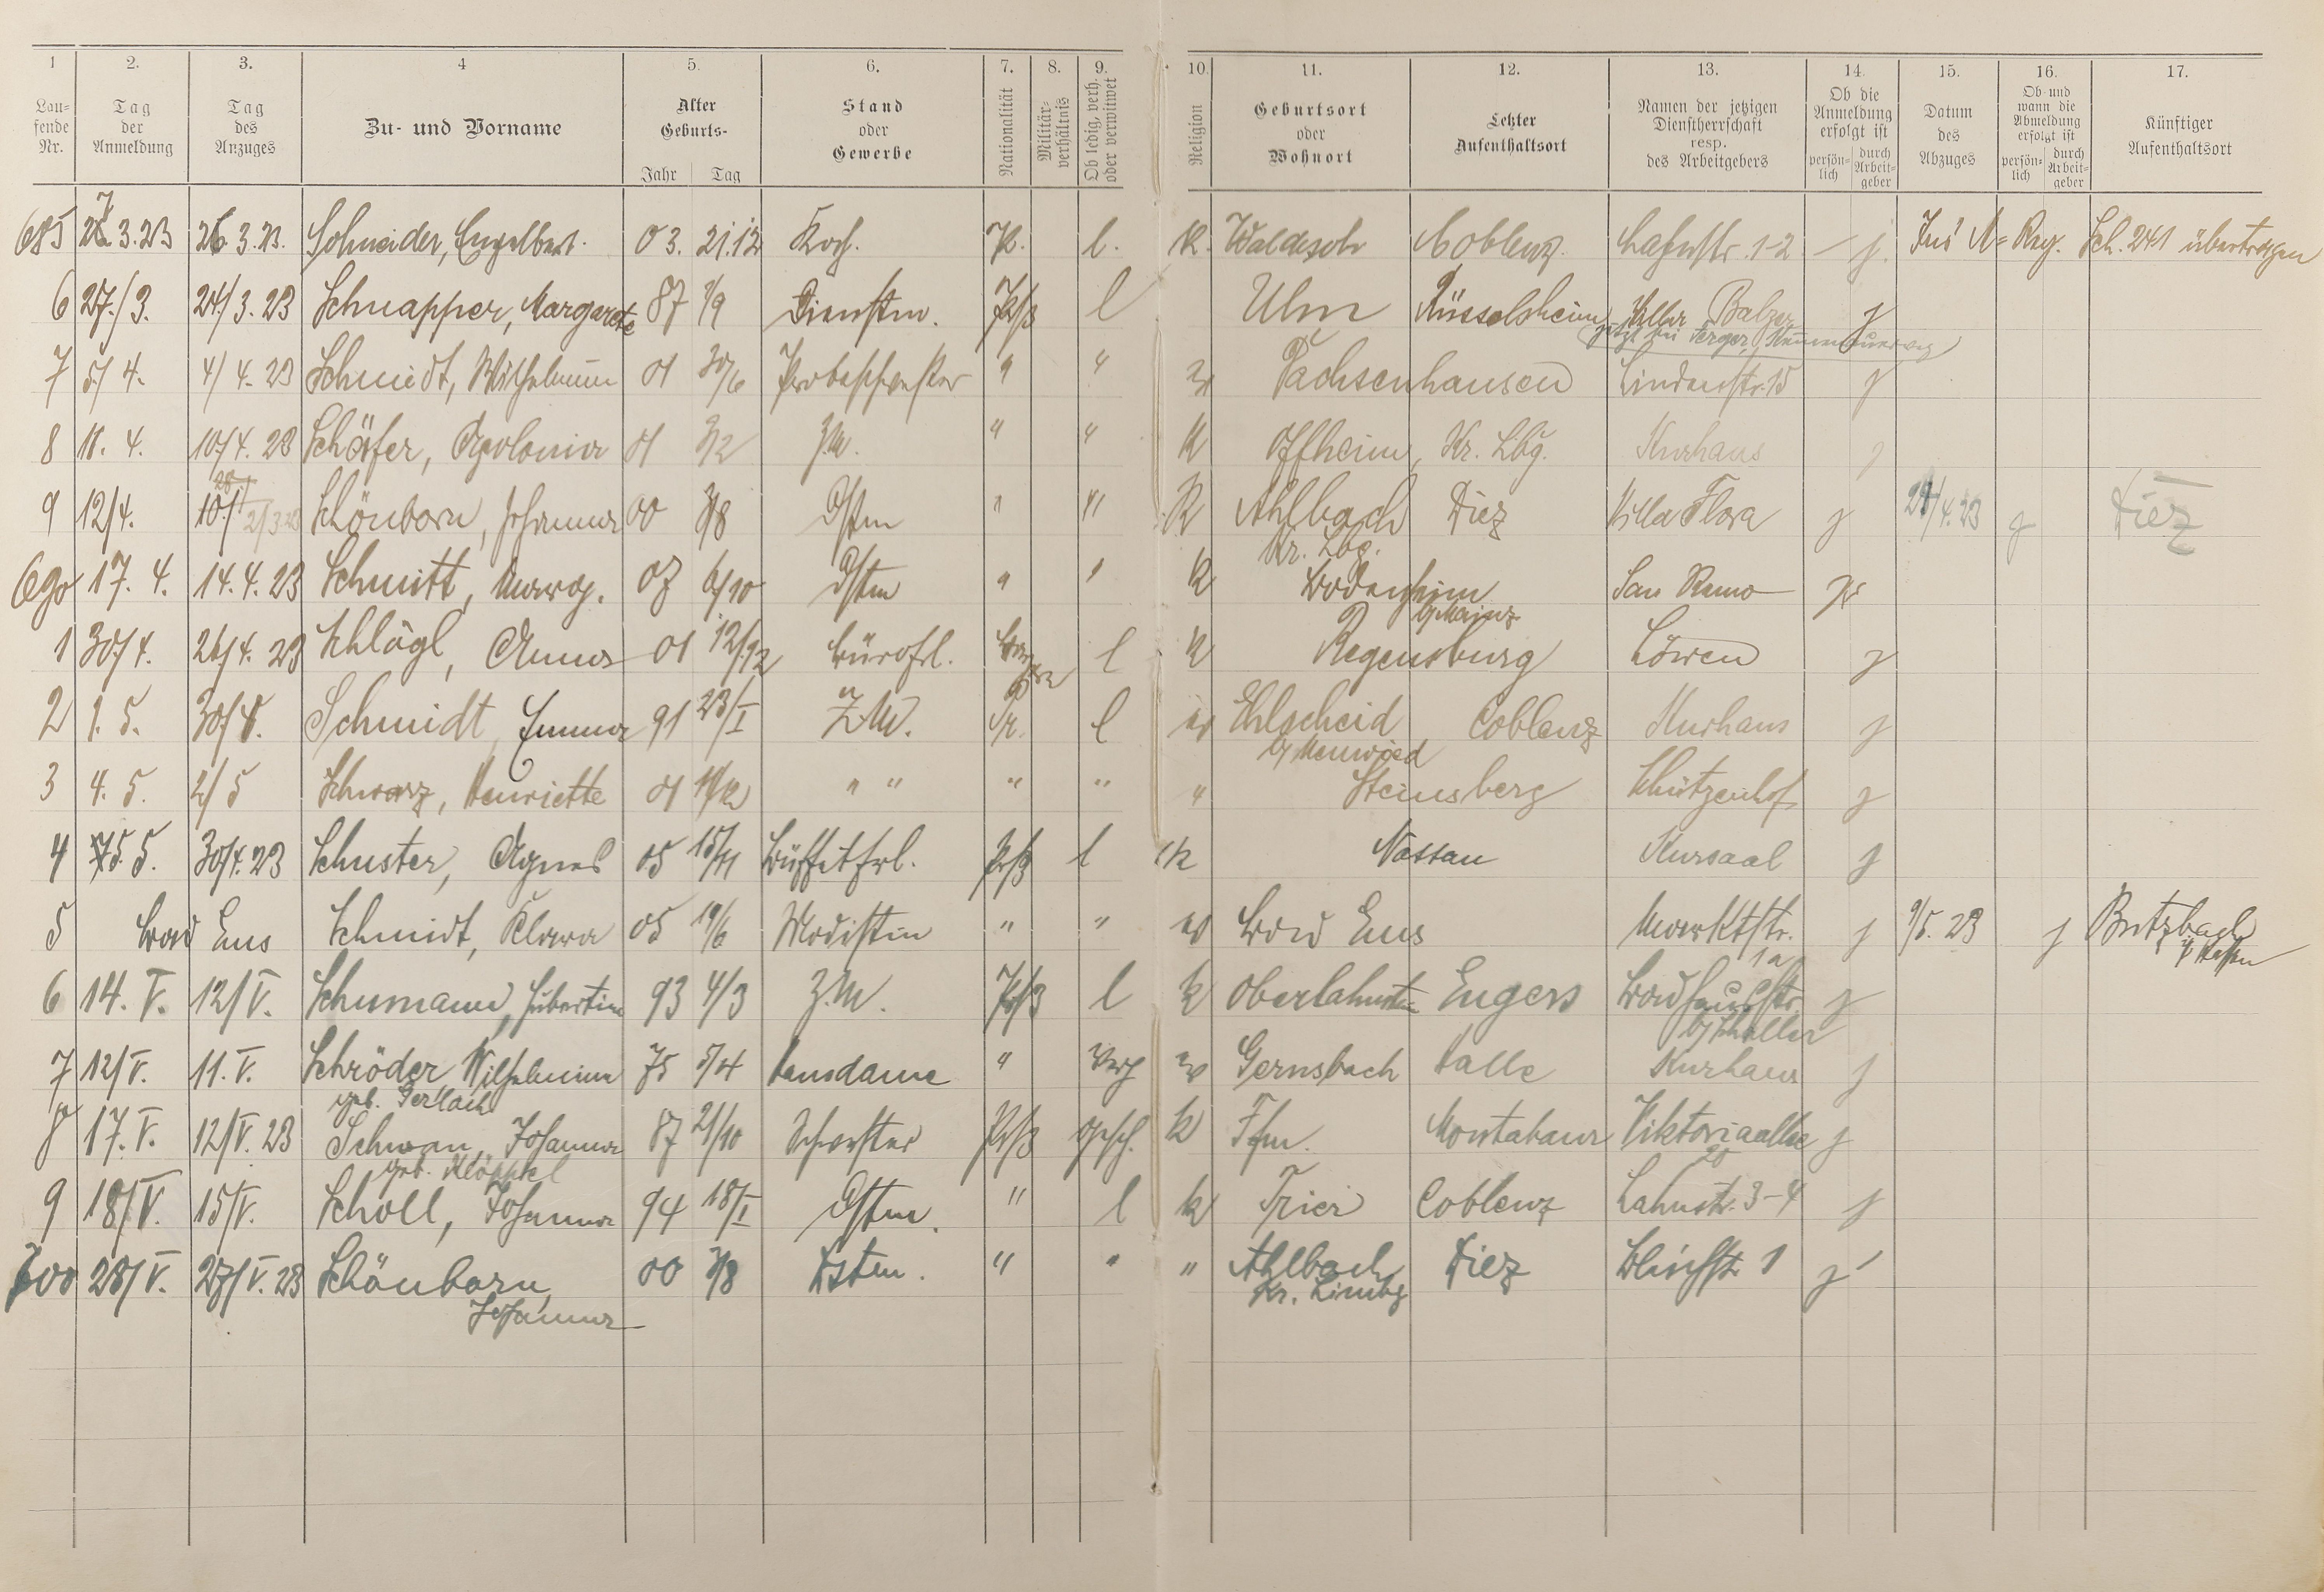 1 2. 3. 4 5. 6. 7. 8. 9. 10. 11. 12. 13. 14. 15. 16. 17.
Lau-fende Nr. Tag der Anmeldung Tag des Anzuges Zu- und Vorname Alter Geburts- Jahr Tag Stand oder Gewerbe Nationalität Militär-verhältnis Ob ledig, verh. oder verwitwet Religion Geburtsort oder Wohnort Letzter Aufenthaltsort Namen der jetzigen Dienstherrschaft resp. des Arbeitgebers Ob die Anmeldung erfolgt ist persön-lich durch Arbeit-geber Datum des Abzuges Ob und wann die Abmeldung erfolgt ist persön-lich durch Arbeit-geber Künftiger Aufenthaltsort
685 27. 3. 23 26. 3. 23. Schneider, Engelbert. 03. 21.12 Koch. Pr. l. K. Waldesch Coblenz. Lahnstr. 1-2 - j. Ins A= Reg. Sch. 241 übertragen
6 27./3. 24/3. 23 Schnapper, Margarete 87 /9 Dienstm. Prß l Ulm Rüsselsheim Villa Balzer j
jetzt bei
7 5/4. 4/4. 23 Schmidt, Wilhelmine 01 30/6 Probeschwester " " Dachsenhausen Lindenstr. 15 j
8 11. 4. 10/4. 23 Schäfer, Apolonia 01 3/2 Z.M. " " K Offheim, Kr. Lbg. Kurhaus j
9 12/4. 10/ Schönborn, Johanna 00 3/8 Dstm " " K Ahlbach Diez Villa Flora j 28/4. 23 j Diez
Kr. Lbg.
690 17. 4. 14. 4. 23 Schmitt, Marg. 07 6/10 Dstm " " K Bodenheim San Remo j
b/ Mainz
1 30/4. 26/4. 23 Schlögl, Anna 01 12/12 Bürofrl. l K Regensburg Löwen j
2 1. 5. 30/4. Schmidt, Emma 91 23/I Z.M. Pr. l ev Ehlscheid Coblenz Kurhaus j
b/ Neuwied
3 4. 5. 2/5 Schwarz, Henriette 01 " " " " " Steinsberg Schützenhof j
4 5. 5. 30/4. 23 Schuster, Agnes 05 15/11 Büffetfrl. Prß l K Nassau Kursaal j
5 Bad Ems Schmidt, Klara 05 19/6 Modistin " " ev Bad Ems Marktstr. j 9/5. 23 j Butzbach
1a
6 14. V. 12/V. Schumann, Hubertine 93 4/3 Z.M. Prß l K Oberlahnstein Engers Badhausstr. j
b/ Schaller
7 12/V. 11. V. Schröder, Wilhelmine 75 5/4 Hausdame " ev Gernsbach Halle Kurhaus j
geb. Gerlach
8 17. V. 12/V. 23 Schwan, Johanna 87 21/10 Schwester Prß gesch. K Ffm. Montabaur Viktoriaallee j
geb. Klöppel 20
9 18/V. 15/V. Scholl, Johanna 94 18/I Dstm. " l K Trier Coblenz Lahnstr. 3-4 j
700 28/V. 27/V. 23 Schönborn, 00 3/8 Dstm. " " " Ahlbach Diez Bleichstr. 1 j
Johanna Kr. Limbg